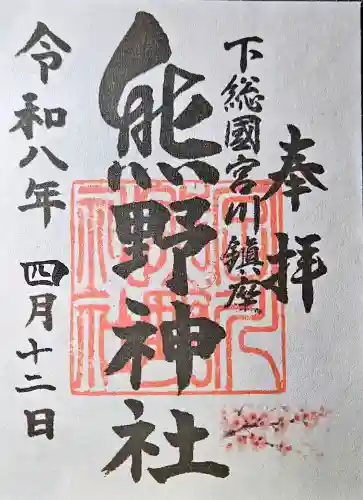 奉拝
下総國宮川鎮座
熊野神社
令和八年 四月十二日